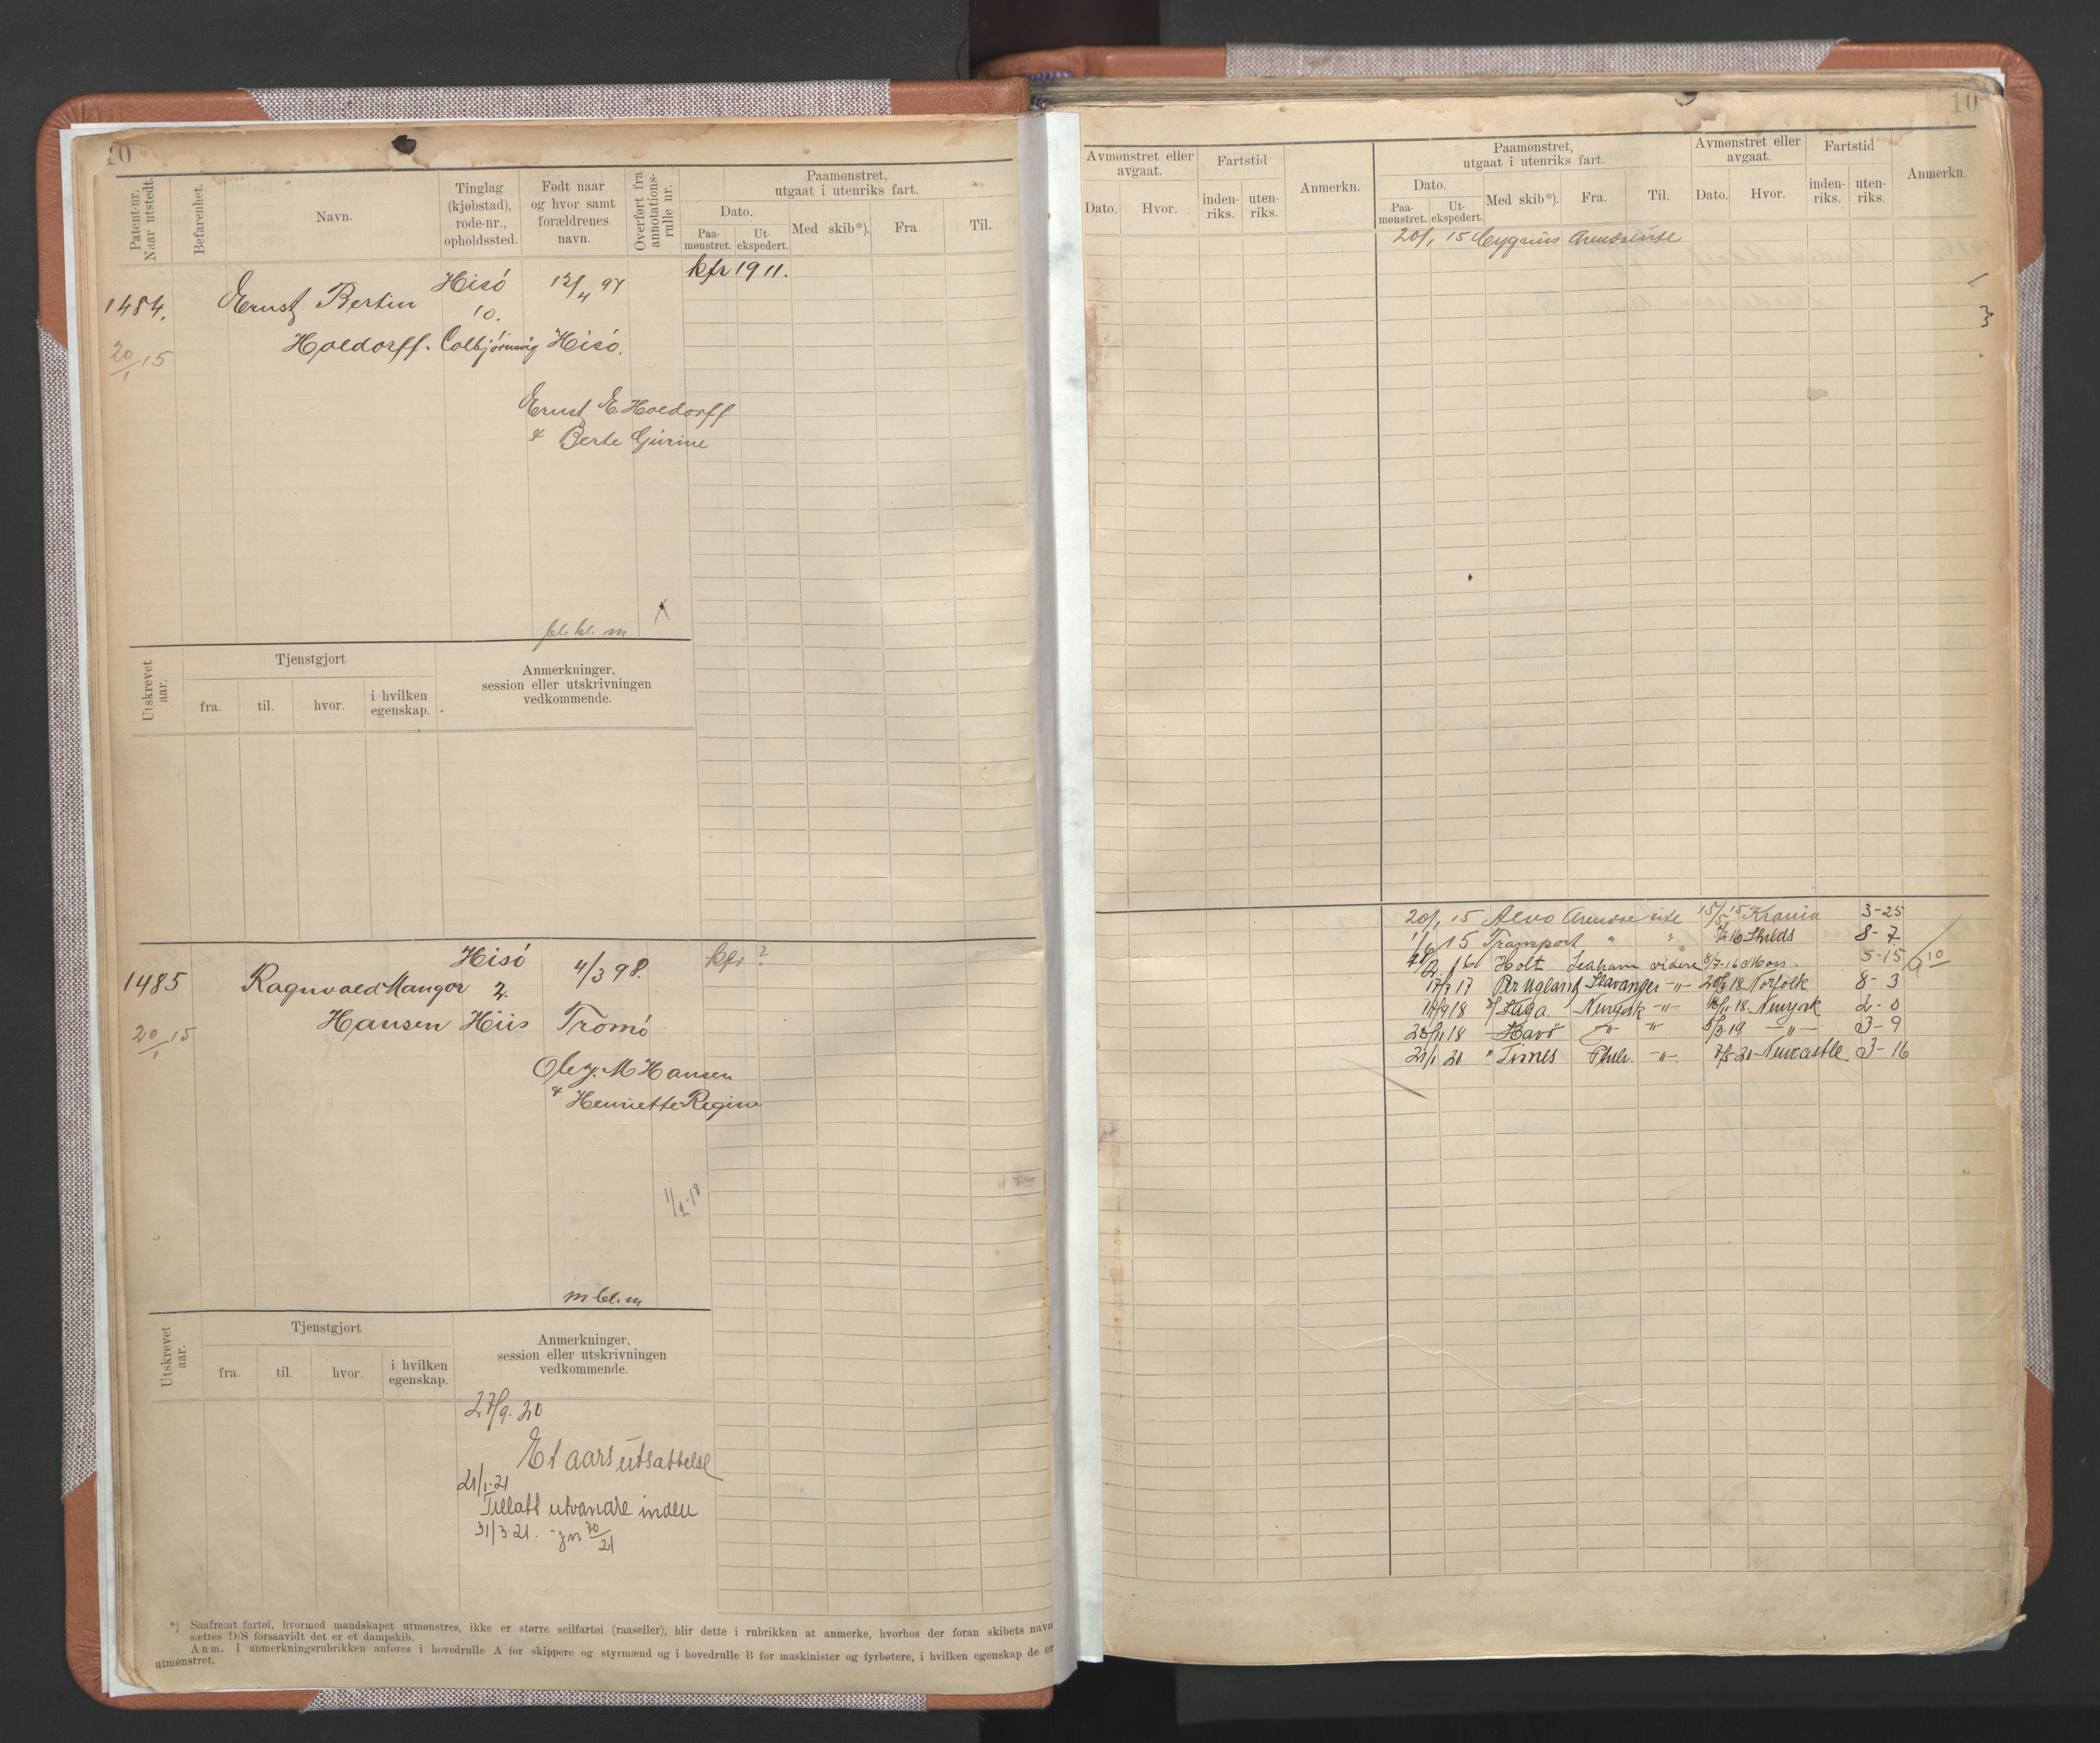 10
Patent-nr. Naar utstedt.
Befarenhet.
Navn.
Tinglag (kjøbstad), rode-nr., opholdssted.
Født naar og hvor samt forældrenes navn.
Overført fra annotations-rulle nr.
Paamønstret, utgaat i utenriks fart.
Dato.
Paa-mønstret.
Ut-ekspedert.
Med skib*).
Fra
Til.
1484. Ernst Bertin Hisö 12/4 97 kfr 1911.
10.
20/1 15 Holdorff. Colbjørnsvig Hisö.
Ernst E. Holdorff
& Berte Gurine
bl. bl. m
Utskrevet aar.
Tjenstgjort
fra. til. hvor. i hvilken egenskap.
Anmerkninger, session eller utskrivningen vedkommende.
Hisö 4/3 98. kfr ?
1485 Ragnvald Mangor 2.
20/1 15 Hansen Hiis Tromö
Ole J. M Hansen
& Henriette Regine
1/2-18
m bl. m
Utskrevet aar.
Tjenstgjort
fra. til. hvor. i hvilken egenskap.
Anmerkninger, session eller utskrivningen vedkommende.
27/9. 20
Et aars utsættelse
21/1-21
Tillatt utvandre inden
31/3-21. jn 70/21
*) Saafremt fartøi, hvormed mandskapet utmønstres, ikke er større seilfartøi (raaseiler), blir dette i rubrikken at anmerke, hvorhos der foran skibets navn
sættes D/S forsaavidt det er et dampskib.
Anm. I anmerkningsrubrikken anføres i hovedrulle A for skippere og styrmænd og i hovedrulle B for maskinister og fyrbøtere, i hvilken egenskap de er
utmønstret.
10
Avmønstret eller avgaat.
Dato. Hvor.
Fartstid
inden-riks. uten-riks.
Anmerkn.
Paamønstret, utgaat i utenriks fart.
Dato.
Paa-mønstret. Ut-ekspedert.
Med skib*). Fra. Til.
Avmønstret eller avgaat.
Dato. Hvor.
Fartstid
inden-riks. uten-riks.
Anmerkn.
20/1 15 Cygnus Arendal ute
20/1 15 Alvo Arendal ute 15/5 15 Krania 3-25
1/6 15 Transport " " 16 Shilds 8-7
2. 16 Holt Seaham videre 8/7-16 Moss. 5-15
17/7 17 Per Ugland Stavanger -"- 20/3 18 Norfolk 8-3
18 Saga. Newyork -"- 18/11-18. Newyork 2-0
25/11 18 Havö -"- -"- 5/3. 19 -"- 3-9
21/1 21 " Times Phil. -"- 7/5-21 Newcastle 3-16